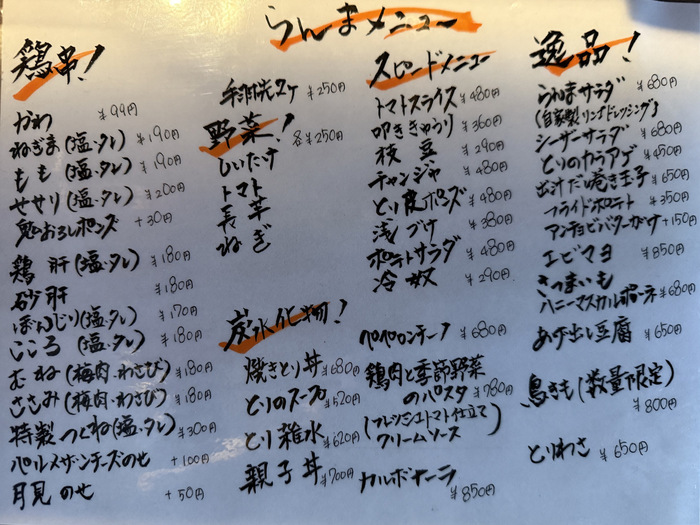 らんまメニュー
鶏串!
かわ ¥99円
ねぎま(塩・タレ) ¥190円
もも(塩・タレ) ¥190円
せせり(塩・タレ) ¥200円
鬼おろしポンズ +30円
鶏肝(塩・タレ) ¥180円
砂肝 ¥180円
ぼんじり(塩・タレ) ¥170円
こころ(塩・タレ) ¥180円
むね(梅肉・わさび) ¥180円
ささみ(梅肉・わさび) ¥180円
特製つくね(塩・タレ) ¥300円
パルメザンチーズのせ +100円
月見のせ +50円
手羽先2ケ ¥250円
野菜! 各¥250円
しいたけ
トマト
長芋
ねぎ
スピードメニュー
トマトスライス ¥480円
叩ききゅうり ¥360円
枝豆 ¥290円
チャンジャ ¥480円
とり皮ポンズ ¥480円
浅づけ ¥380円
ポテトサラダ ¥480円
冷奴 ¥290円
逸品!
らんまサラダ ¥680円
(自家製リンゴドレッシング)
シーザーサラダ ¥680円
とりのカラアゲ ¥450円
出汁だし巻き玉子 ¥650円
フライドポテト ¥350円
アンチョビバターがけ +150円
エビマヨ ¥850円
さつまいも
ハニーマスカルポーネ ¥680円
あげ出し豆腐 ¥650円
鳥きも(数量限定)
¥800円
とりわさ ¥650円
炭水化物!
焼きとり丼 ¥680円
とりのスープ ¥520円
とり雑水 ¥620円
親子丼 ¥700円
ペペロンチーノ ¥680円
鶏肉と季節野菜
のパスタ ¥780円
(フレッシュトマト仕立て
クリームソース)
カルボナーラ
¥850円